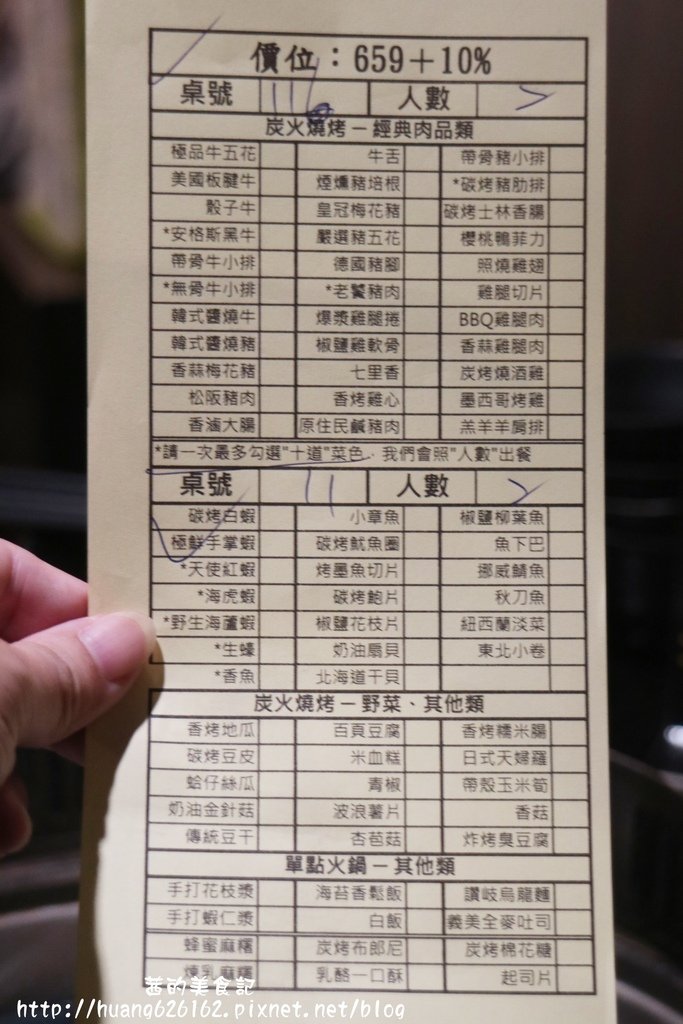 價位：659＋10%
桌號 116 人數 2
炭火燒烤－經典肉品類
極品牛五花 牛舌 帶骨豬小排
美國板腱牛 煙燻豬培根 *碳烤豬肋排
骰子牛 皇冠梅花豬 碳烤士林香腸
*安格斯黑牛 嚴選豬五花 櫻桃鴨菲力
帶骨牛小排 德國豬腳 照燒雞翅
*無骨牛小排 *老饕豬肉 雞腿切片
韓式醬燒牛 爆漿雞腿捲 BBQ雞腿肉
韓式醬燒豬 椒鹽雞軟骨 香蒜雞腿肉
香蒜梅花豬 七里香 炭烤燒酒雞
松阪豬肉 香烤雞心 墨西哥烤雞
香滷大腸 原住民鹹豬肉 羔羊羊肩排
*請一次最多勾選"十道"菜色，我們會照"人數"出餐
桌號 11 人數 2
碳烤白蝦 小章魚 椒鹽柳葉魚
極鮮手掌蝦 碳烤魷魚圈 魚下巴
*天使紅蝦 烤墨魚切片 挪威鯖魚
*海虎蝦 碳烤鮑片 秋刀魚
*野生海蘆蝦 椒鹽花枝片 紐西蘭淡菜
*生蠔 奶油扇貝 東北小卷
*香魚 北海道干貝
炭火燒烤－野菜、其他類
香烤地瓜 百頁豆腐 香烤糯米腸
碳烤豆皮 米血糕 日式天婦羅
蛤仔絲瓜 青椒 帶殼玉米筍
奶油金針菇 波浪薯片 香菇
傳統豆干 杏苞菇 炸烤臭豆腐
單點火鍋－其他類
手打花枝漿 海苔香鬆飯 讚岐烏龍麵
手打蝦仁漿 白飯 義美全麥吐司
蜂蜜麻糬 炭烤布郎尼 炭烤棉花糖
煉乳麻糬 乳酪一口酥 起司片
茜的美食記
http://huang626162.pixnet.net/blog